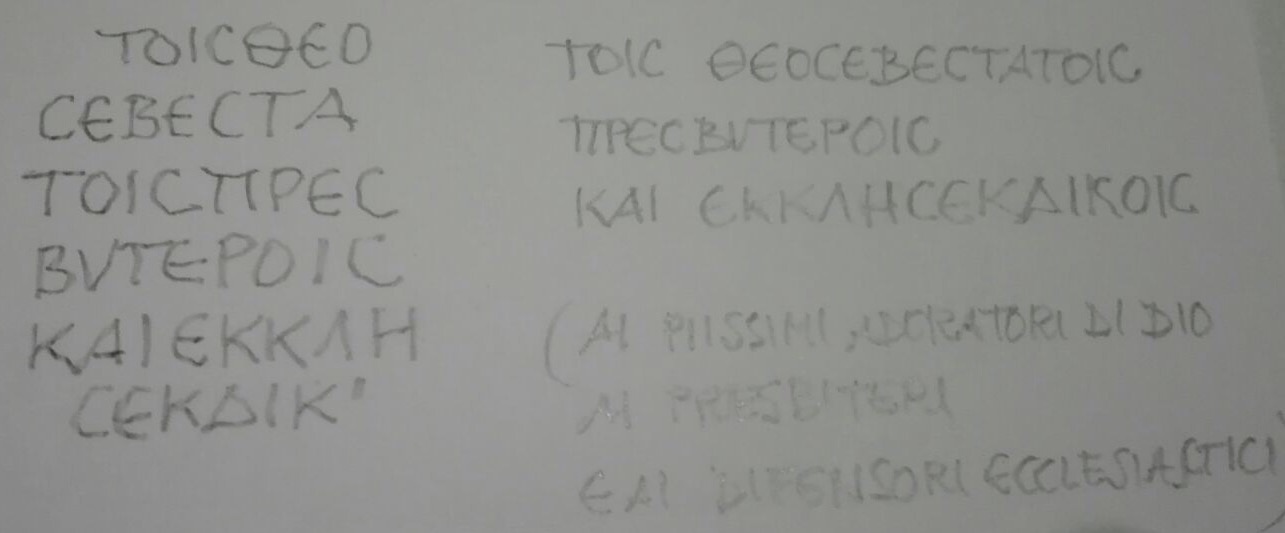 ΤΟΙCΘЄΟ
CЄΒΕCΤΑ
ΤΟΙCΠΡΕC
ΒVΤЄΡΟΙC
ΚΑΙЄΚΚΛΗ
CЄΚΔΙΚ'
ΤΟΙC ΘЄΟCЄΒΕCΤΑΤΟΙC
ΠΡΕCΒVΤΕΡΟΙC
ΚΑΙ ЄΚΚΛΗCЄΚΔΙΚΟΙC
(AI PIISSIMI, ADORATORI DI DIO
AI PRESBITERI
E AI DIFENSORI ECCLESIASTICI)